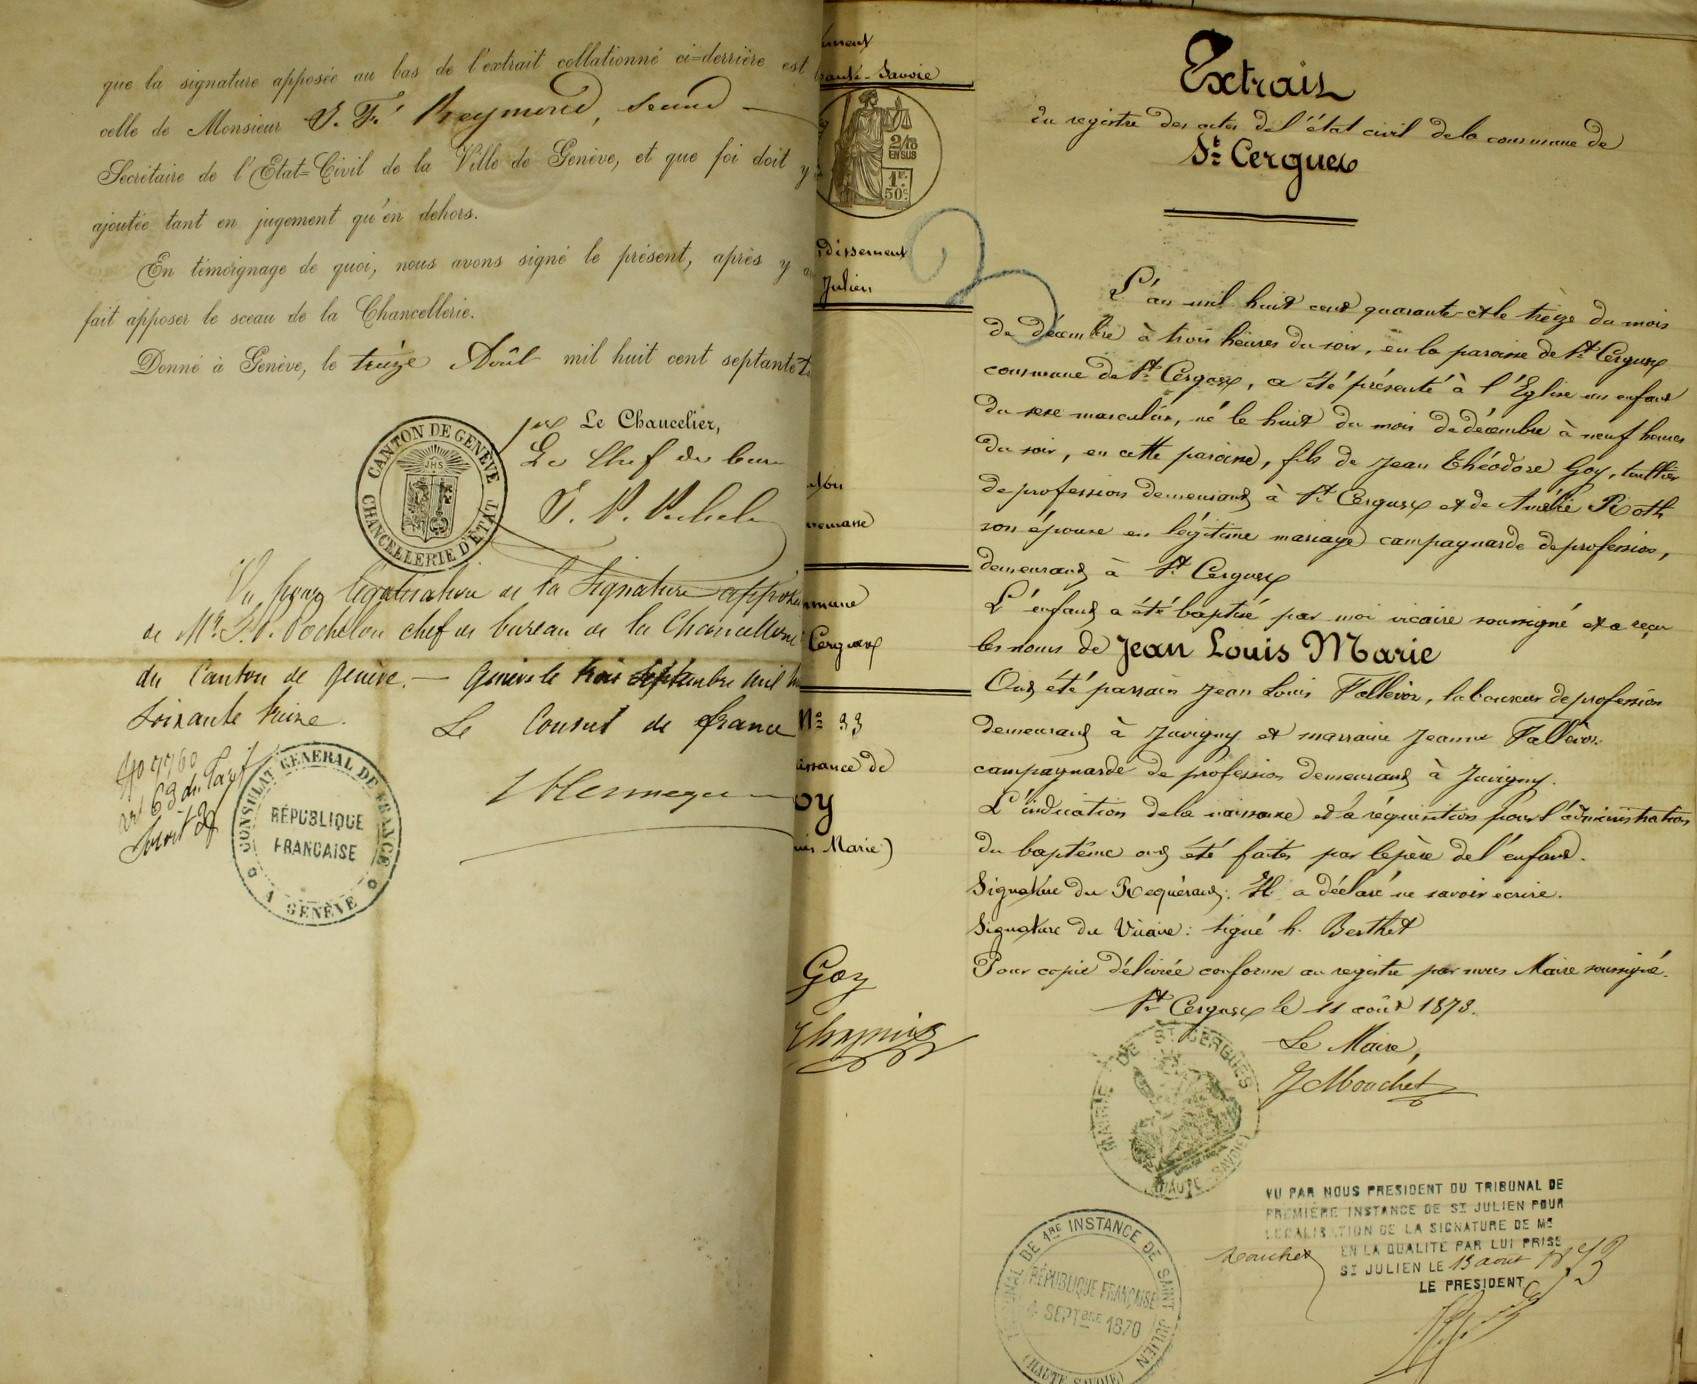 que la signature apposée au bas de l'extrait collationné ci-derrière est
celle de Monsieur J. Fs Reymond, second
Secrétaire de l'Etat-Civil de la Ville de Genève, et que foi doit y
ajoutée tant en jugement qu'en dehors.
En témoignage de quoi, nous avons signé le présent, après y
fait apposer le sceau de la Chancellerie.
Donné à Genève, le treize Août mil huit cent septante
Le Chancelier,
Le Chef du bureau
CANTON DE GENÈVE
JHS
CHANCELLERIE D'ÉTAT
Vu pour légalisation de la signature apposée
de Mr chef de bureau de la Chancellerie
du Canton de Genève. — Genève le trois septembre mil
soixante treize.
Le Consul de france
No 7760
art 63 du Tarif
CONSULAT GENERAL DE FRANCE
RÉPUBLIQUE
FRANÇAISE
A GENÈVE
Savoie
2/10
EN SUS
1F.
50C.
dissement
Julien
mmune
Cergues
No 33
issance de
oy
uis Marie)
Goy
Extrait
du registre des actes de l'état civil de la commune de
St Cergues
L'an mil huit cent quarante et le treize du mois
de décembre à trois heures du soir, en la paroisse de St Cergues
commune de St Cergues, a été présenté à l'Eglise un enfant
du sexe masculin, né le huit du mois de décembre à neuf heures
du soir, en cette paroisse, fils de Jean Théodore Goy, tuillier
de profession demeurant à St Cergues et de Amélie Roth
son épouse en légitime mariage campagnarde de profession,
demeurant à St Cergues
L'enfant a été baptisé par moi vicaire soussigné et a reçu
les noms de Jean Louis Marie
Ont été parrain Jean Louis Vallevoz, laboureur de profession
demeurant à Juvigny et marraine Jeanne
campagnarde de profession demeurant à Juvigny.
L'indication de la naissance et la réquisition pour l'administration
du baptême ont été faites par le père de l'enfant.
Signature du Requérant: Il a déclaré ne savoir écrire.
Signature du Vicaire: signé h. Berthet
Pour copie délivrée conforme au registre par nous Maire soussigné.
St Cergues le 11 août 1873.
Le Maire,
J Mouchet
MAIRIE DE ST CERGUES
(HAUTE SAVOIE)
VU PAR NOUS PRESIDENT DU TRIBUNAL DE
PREMIÈRE INSTANCE DE ST JULIEN POUR
LEGALISATION DE LA SIGNATURE DE MR
Mouchet EN LA QUALITÉ PAR LUI PRISE
ST JULIEN LE 13 aout 1873
LE PRESIDENT
TRIBUNAL DE 1RE INSTANCE DE SAINT JULIEN
RÉPUBLIQUE FRANÇAISE
4 SEPTBRE 1870
(HAUTE SAVOIE)